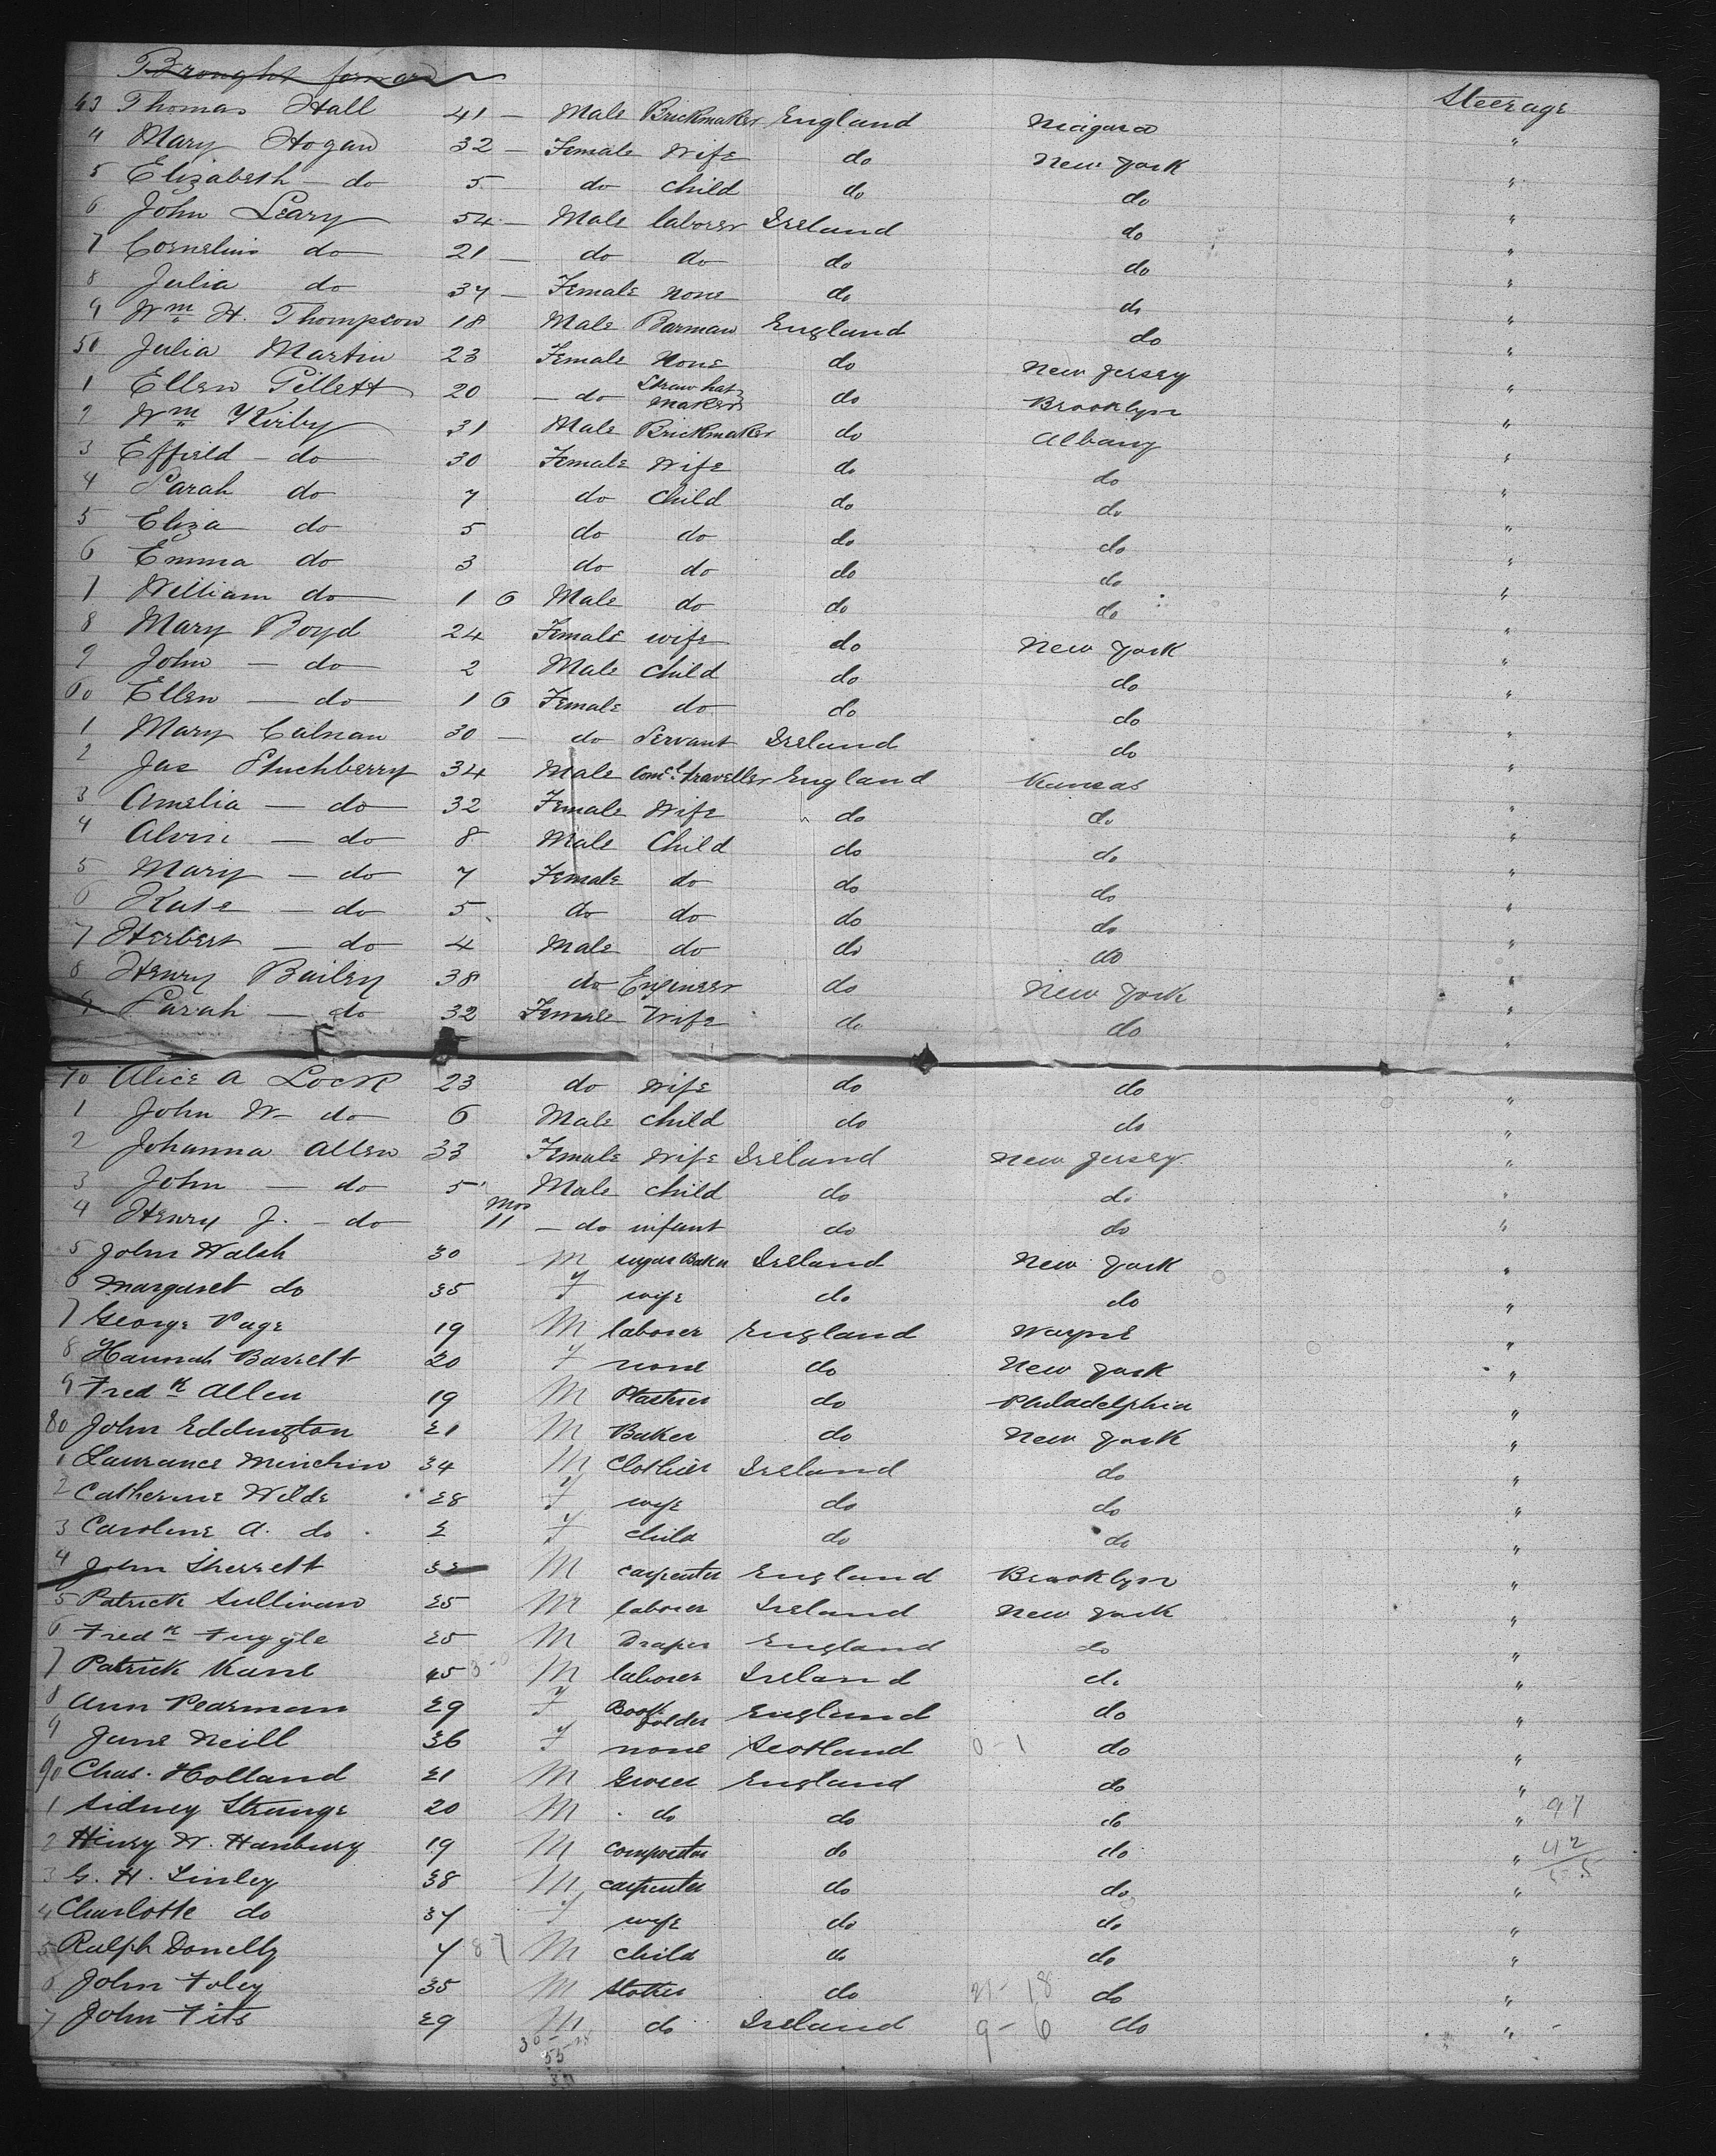 Brought forward
Steerage
43 Thomas Hall 41 — Male Brickmaker England Niagara "
4 Mary Hogan 32 — Female Wife do New York "
5 Elizabeth — do 5 do child do do "
6 John Leary 54 — Male laborer Ireland do "
7 Cornelius do 21 — do do do do "
8 Julia do 37 — Female none do do "
9 Wm H. Thompson 18 Male Barman England do "
50 Julia Martin 23 Female None do New Jersey "
1 Ellen Gillett 20 — do Straw hat maker do Brooklyn "
2 Wm Kirby 31 Male Brickmaker do Albany "
3 Effield — do 30 Female Wife do do "
4 Sarah do 7 do child do do "
5 Eliza do 5 do do do do "
6 Emma do 3 do do do do "
7 William do 1 6 Male do do do "
8 Mary Boyd 24 Female wife do New York "
9 John — do 2 Male Child do do "
60 Ellen — do 1 6 Female do do do "
1 Mary Calnan 30 — do Servant Ireland do "
2 Jas Stuchberry 34 Male Comcl. traveller England Kansas "
3 Amelia — do 32 Female Wife do do "
4 Alvin — do 8 Male Child do do "
5 Mary — do 7 Female do do do "
6 Kate — do 5 do do do do "
7 Herbert — do 4 Male do do do "
8 Henry Bailey 38 do Engineer do New York "
9 Sarah — do 32 Female Wife do do "
70 Alice A Lock 23 do wife do do "
1 John W — do 6 Male child do do "
2 Johanna Allen 33 Female Wife Ireland New Jersey "
3 John — do 5 Male child do do "
4 Henry J. — do mos 11 — do infant do do "
5 John Walsh 30 M sugar Baker Ireland New York "
6 Margaret do 35 F wife do do "
7 George Page 19 M laborer England Wayne "
8 Hannah Barrett 20 F none do New York "
9 Fredk Allen 19 M Plasterer do Philadelphia "
80 John Eddington 21 M Baker do New York "
1 Laurance Minchin 34 M Clothier Ireland do "
2 Catherine Wilde 28 F wife do do "
3 Caroline A. do 2 F child do do "
4 John Sherrett 32 M carpenter England Brooklyn "
5 Patrick Sullivan 25 M laborer Ireland New York "
6 Fredk Fuggle 25 M Draper England do "
7 Patrick Kane 45 M laborer Ireland do "
8 Ann Pearman 29 F Book folder England do "
9 Jane Neill 36 F none Scotland 0 - 1 do "
90 Chas. Holland 21 M Grocer England do "
1 Sidney Strange 20 M do do do " 97
2 Henry W. Hanbury 19 M compositor do do " 42
3 G. H. Linley 38 M carpenter do do " 55
4 Charlotte do 37 F wife do do "
5 Ralph Donelly 7 87 M child do do "
6 John Foley 35 M stoker do 21 - 18 do "
7 John Fits 29 M do Ireland 9 - 6 do "
55